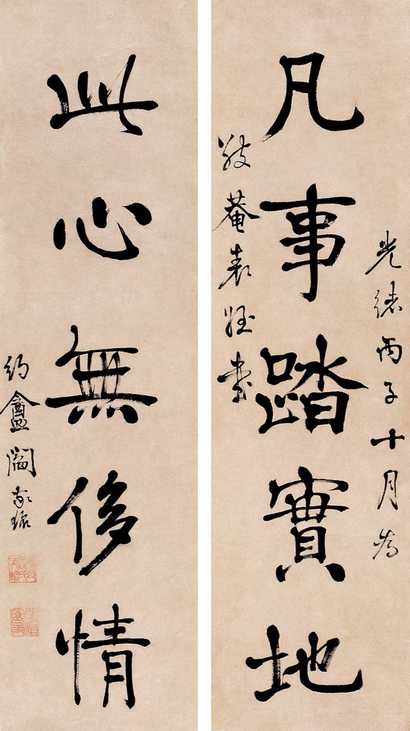 凡事踏實地
光緒丙子十月為
菴表姪書
此心無侈情
約盦閻敬